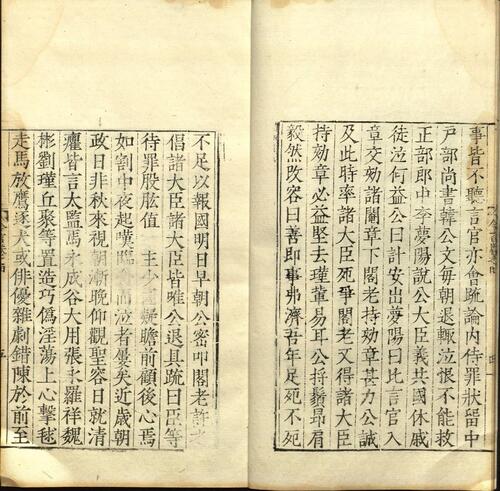 事皆不聽言官亦會疏論内侍罪狀留中
戸部尚書韓公文毎朝退輙泣恨不能救
正部郎中李夢陽説公大臣義共國休戚
徒泣何益公曰計安出夢陽曰比言官入
章交劾諸閹章下閣老持劾章甚力公誠
及此時率諸大臣死爭閣老又得諸大臣
持劾章必益堅去瑾軰易耳公捋鬚昻肩
毅然改容曰善即事弗濟吾年足死不死
不足以報國明日早朝公密叩閣老許之
倡諸大臣諸大臣皆唯公退具疏曰臣等
待罪股肱值 主少國疑瞻前顧後心焉
如割中夜起嘆臨食而泣者屢矣近歲朝
政日非秋來視朝漸晩仰觀聖容日就清
癯皆言太監馬永成谷大用張永羅祥魏
彬劉瑾丘聚等置造巧僞淫蕩上心擊毬
走馬放鷹逐犬或俳優雜劇錯陳於前至